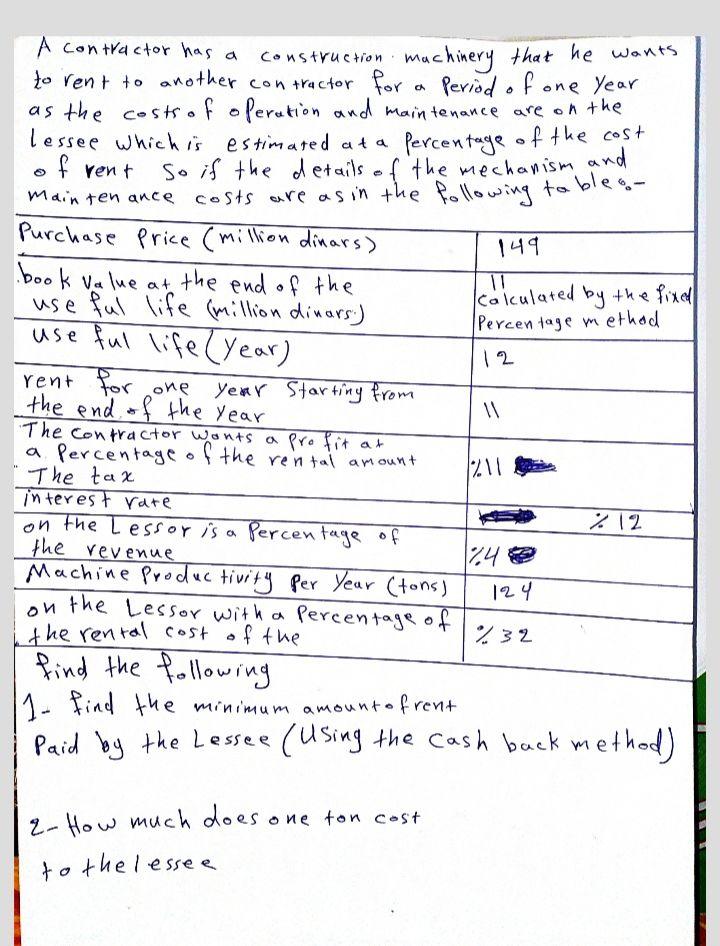 A contractor has a construction machinery that he wants
to rent to another contractor for a Period of one Year
as the costs of operation and maintenance are on the
Lessee which is estimated at a Percentage of the cost
of rent So if the details of the mechanism and
maintenance costs are as in the following tables:-
Purchase Price (million dinars) 149
book value at the end of the useful life (million dinars) 11 calculated by the fixed Percentage method
useful life (year) 12
rent for one year Starting from
the end of the Year 11
The contractor wants a profit at
a Percentage of the rental amount %11
The tax
interest rate %12
on the Lessor is a Percentage of
the revenue %4
Machine Productivity Per Year (tons) 124
on the Lessor with a Percentage of
the rental cost of the %32
find the following
1- find the minimum amount of rent
Paid by the Lessee (Using the Cash back method)
2- How much does one ton cost
to the lessee